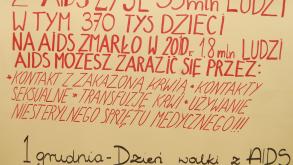 Z AIDS ŻYJE 33mln LUDZI
W TYM 370 TYS DZIECI
NA AIDS ZMARŁO W 2010r. 1,8 mln LUDZI
AIDS MOŻESZ ZARAZIĆ SIĘ PRZEZ:
*KONTAKT Z ZAKAŻONĄ KRWIĄ *KONTAKTY
SEKSUALNE *TRANSFUZJĘ KRWI *UŻYWANIE
NIESTERYLNEGO SPRZĘTU MEDYCZNEGO!!!
1 grudnia - Dzień walki z AIDS